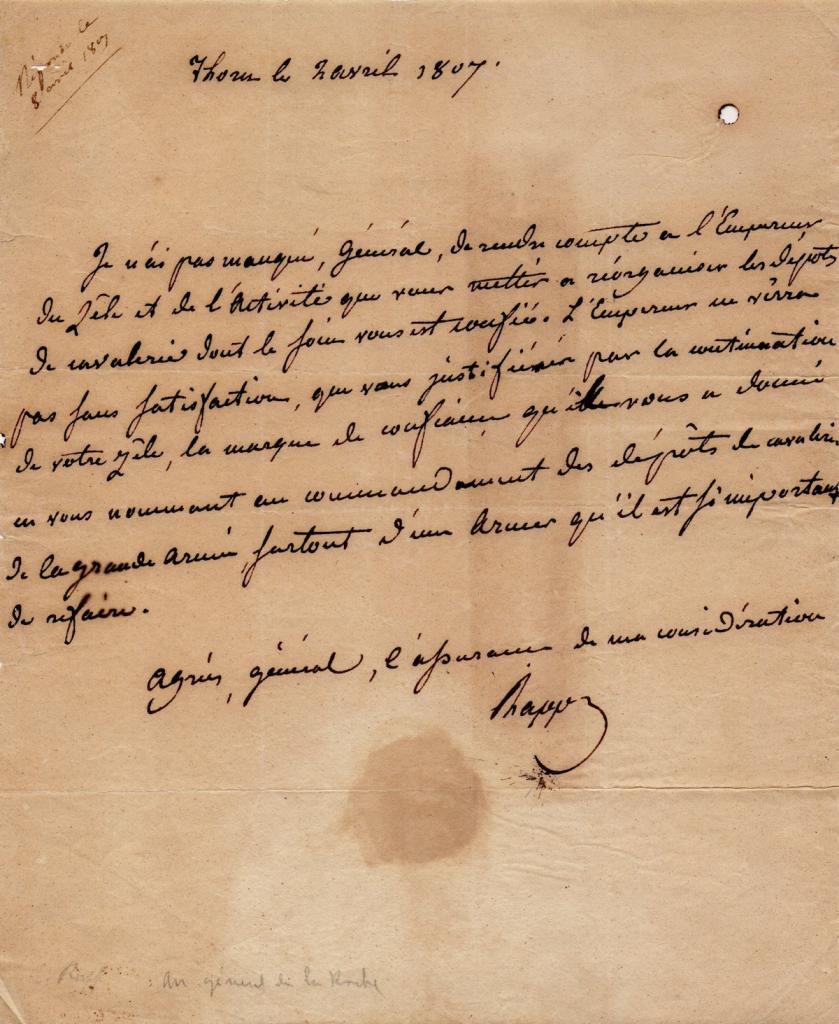 Répondu le
8 avril 1807
Thorn le 2 avril 1807.
Je n'ai pas manqué, Général, de rendre compte a l'Empereur
du Zêle et de l'Activité que vous mettés a réorganiser les dépôts
de cavalerie dont le soin vous est confié. L'Empereur ne vérra
pas sans satisfaction, que vous justifiérés par la continuation
de votre zêle, la marque de confiance qu'il vous a donné
en vous nommant au commandement des dépôts de cavalerie
de la grande Armée, surtout d'une Armée qu'il est si important
de refaire.
Agréés, général, l'assurance de ma considération
Rapp
Au général de la Roche